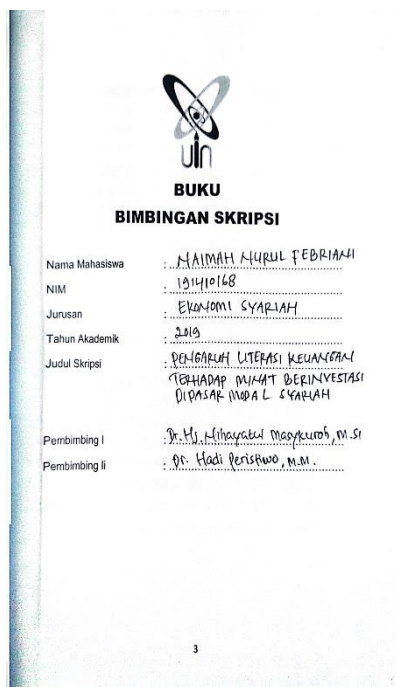 UIN
BUKU
BIMBINGAN SKRIPSI
Nama Mahasiswa : NAIMAH NURUL FEBRIANI
NIM : 191410168
Jurusan : EKONOMI SYARIAH
Tahun Akademik : 2019
Judul Skripsi : PENGARUH LITERASI KEUANGAN
TERHADAP MINAT BERINVESTASI
DIPASAR MODAL SYARIAH
Pembimbing I : Dr. Hj. Nihayatul Masykuroh, M.SI
Pembimbing Ii : Dr. Hadi Peristiwo, M.M.
3